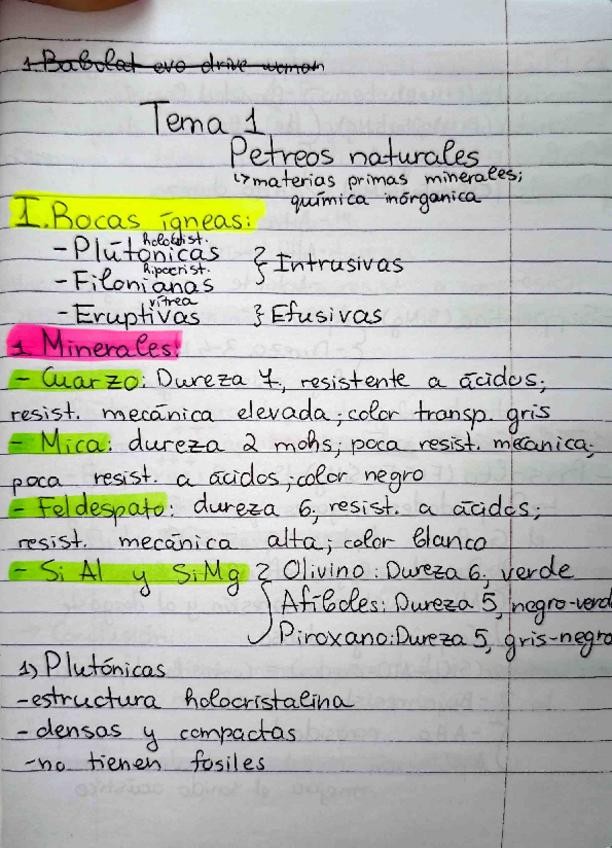 1. Babolat evo drive woman
Tema 1
Petreos naturales
↳ materias primas minerales;
química inórganica
I. Rocas ígneas:
- Plutónicas holocrist. } Intrusivas
- Filonianas hipocrist.
- Eruptivas vítrea } Efusivas
1. Minerales:
- Cuarzo: Dureza 7, resistente a ácidos;
resist. mecánica elevada; color transp. gris
- Mica: dureza 2 mohs; poca resist. mecanica;
poca resist. a ácidos; color negro
- Feldespato: dureza 6, resist. a ácidos;
resist. mecánica alta; color blanco
- Si Al y SiMg } Olivino: Dureza 6, verde
Afiboles: Dureza 5, negro-verd
Piroxano: Dureza 5, gris-negro
1) Plutónicas
- estructura holocristalina
- densas y compactas
- no tienen fosiles